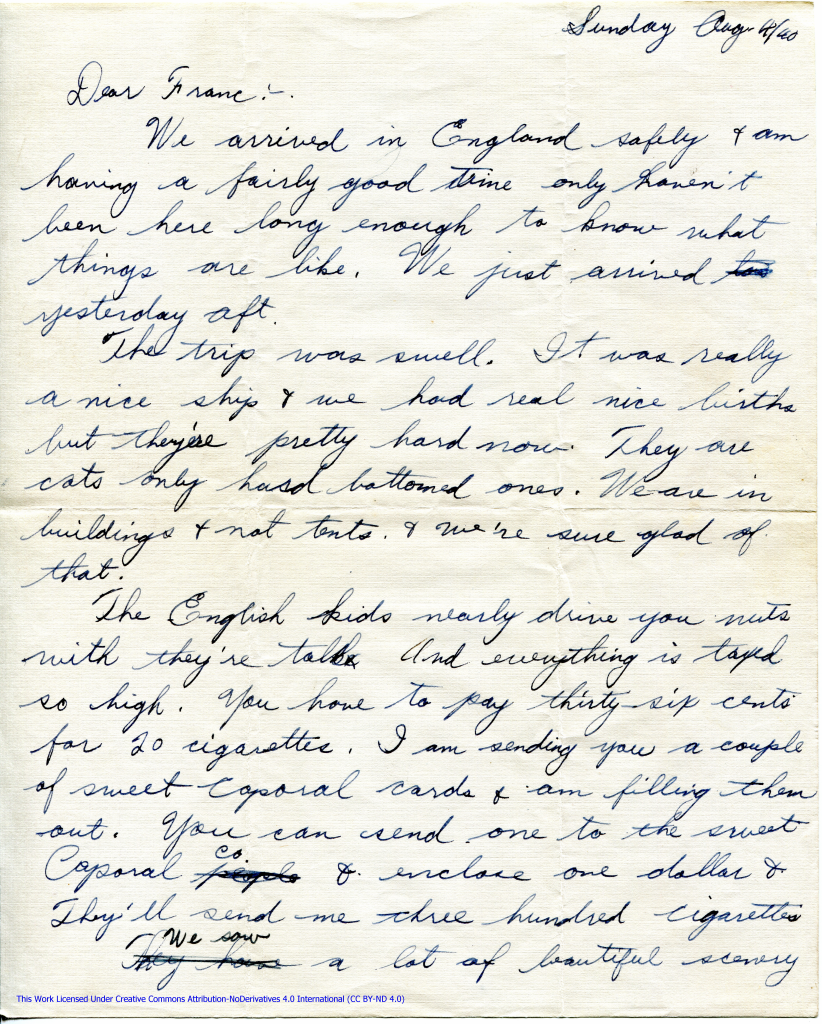 Sunday Aug. 4/40
Dear Franc:-
We arrived in England safely & am
having a fairly good time only haven't
been here long enough to know what
things are like. We just arrived
yesterday aft.
The trip was swell. It was really
a nice ship & we had real nice births
but they're pretty hard now. They are
cots only hard bottomed ones. We are in
buildings & not tents. & we're sure glad of
that.
The English kids nearly drive you nuts
with they're talk. And everything is taxed
so high. You have to pay thirty-six cents
for 20 cigarettes. I am sending you a couple
of sweet Caporal cards & am filling them
out. You can send one to the sweet
Caporal co. & enclose one dollar &
They'll send me three hundred cigarettes
We saw a lot of beautiful scenery
This Work Licensed Under Creative Commons Attribution-NoDerivatives 4.0 International (CC BY-ND 4.0)